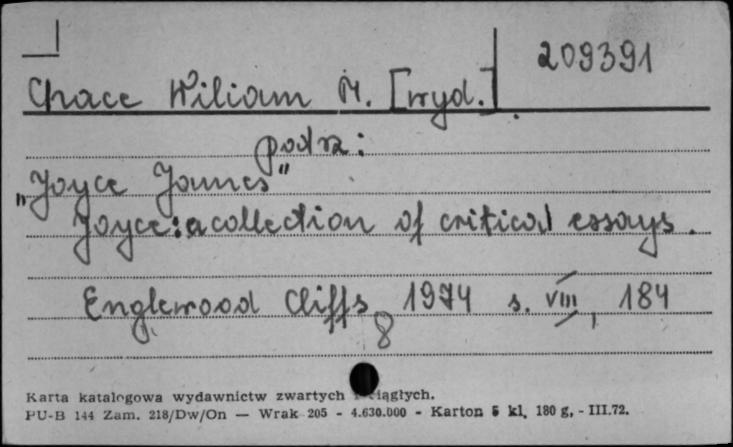 209391
Chace Wiliam M. [wyd.]
podrz:
„Joyce James”
Joyce: a collection of critical essays.
Englewood Cliffs 1974 s. VIII, 184
8
Karta katalogowa wydawnictw zwartych i ciągłych.
PU-B 144 Zam. 218/Dw/On — Wrak 205 - 4.630.000 - Karton 5 kl. 180 g. - III.72.